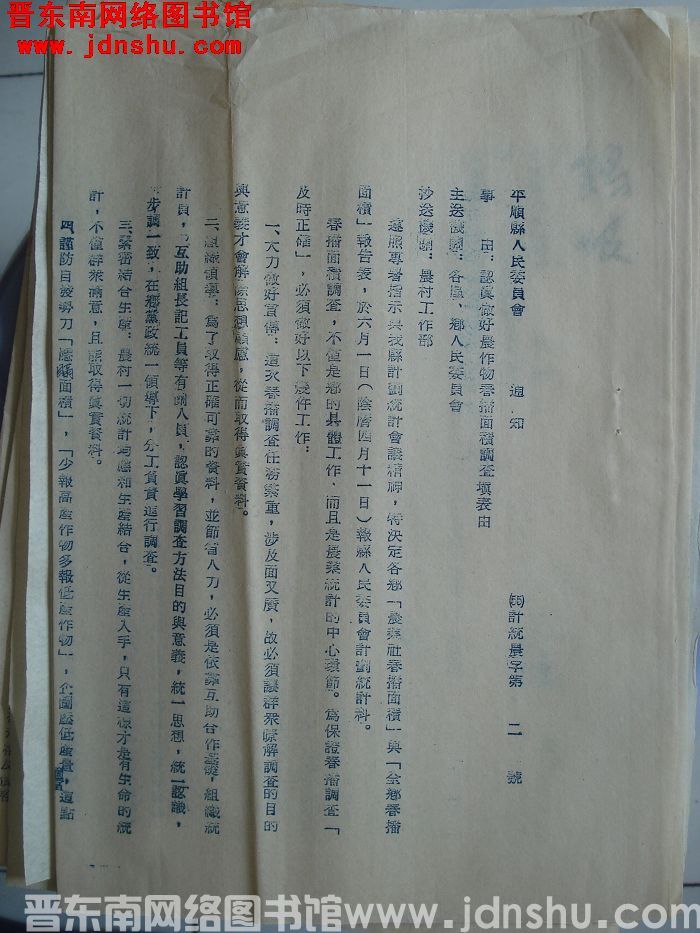 晋东南网络图书馆
www.jdnshu.com
平順縣人民委員會 通知 計統農字第二號
事由:認眞做好農作物春播面積調查塡表由
主送機關:各區、鄉人民委員會
抄送機關:農村工作部
遵照專署指示與我縣計劃統計會議精神,特決定各鄉「農業社春播面積」與「全鄉春播
面積」報告表,於六月一日(陰曆四月十一日)報縣人民委員會計劃統計科。
春播面積調查,不僅是鄉的具體工作、而且是農業統計的中心環節。爲保證春播調查「
及時正確」,必須做好以下幾件工作:
一、大力做好宣傳:這次春播調查任務繁重,涉及面又廣,故必須讓群衆瞭解調查的目的
與意義才會解除思想顧慮,從而取得眞實資料。
二、組織領導:爲了取得正確可靠的資料,並節省人力,必須是依靠互助合作基礎,組織統
計員,互助組長記工員等有關人員,認眞學習調查方法目的與意義,統一思想,統一認識,
步調一致,在鄉黨政統一領導下,分工負責進行調查。
三、緊密結合生產:農村一切統計均應和生產結合,從生產入手,只有這樣才是有生命的統
計,不僅群衆滿意,且能取得眞實資料。
四、謹防自發勢力「瞞面積」,「少報高產作物多報低產作物」,企圖壓低產量,這點
晋东南网络图书馆 www.jdnshu.com